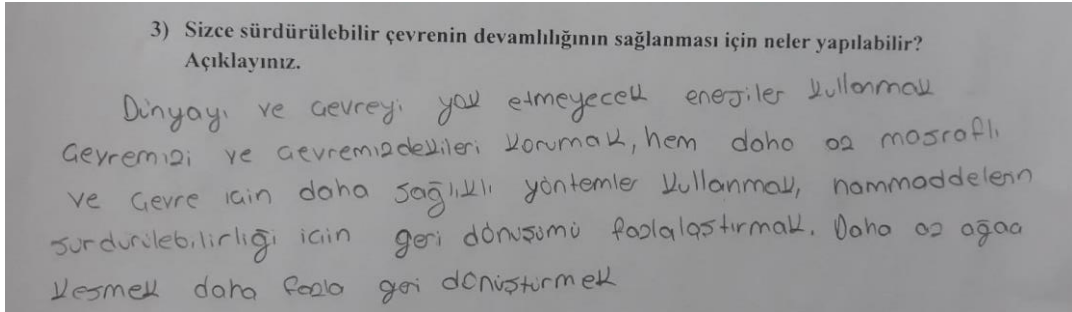 3) Sizce sürdürülebilir çevrenin devamlılığının sağlanması için neler yapılabilir?
Açıklayınız.
Dünyayı ve çevreyi yok etmeyecek enerjiler kullanmak
çevremizi ve çevremizdekileri korumak, hem daha az masraflı
ve çevre için daha sağlıklı yöntemler kullanmak, hammaddelerin
sürdürülebilirliği için geri dönüşümü fazlalaştırmak. Daha az ağaç
kesmek daha fazla geri dönüştürmek